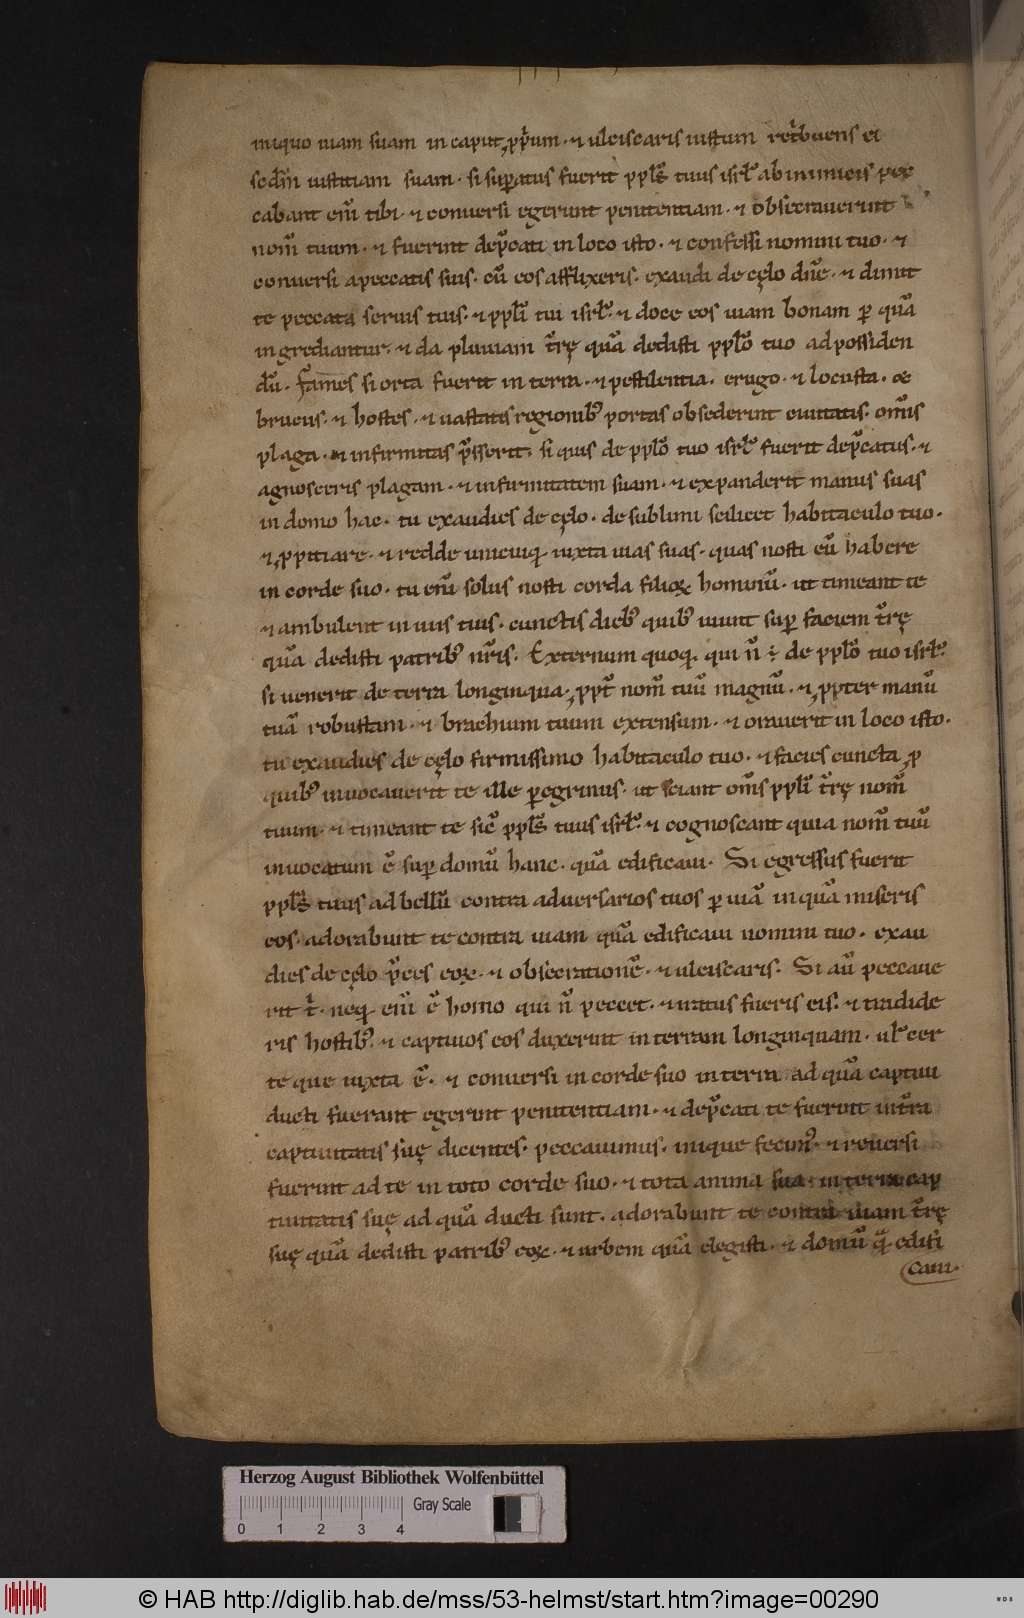 iniquo uiam suam in caput ꝓprium · ⁊ ulciscaris iustum retͥbuens ei
scdm̄ iustitiam suam · si suꝑatus fuerit ppl̄s tuus isrl̄ ab inimicis pec
cabunt eni̅ tibi · ⁊ conuersi egerunt penitentiam · ⁊ obsecrauerint
nom̄ tuum · ⁊ fuerint dep̄cati in loco isto · ⁊ confessi nomini tuo · ⁊
conuersi a peccatis suis · cū eos afflixeris · exaudi de cęlo dn̄e · ⁊ dimit
te peccata seruis tuis · ⁊ ppl̄i tui isrl̄ · ⁊ doce eos uiam bonam ꝑ quā
ingrediantur · ⁊ da pluuiam t̄rę quā dedisti ppl̄o tuo ad possiden
dū · Fames si orta fuerit in terra · ⁊ pestilentia · erugo · ⁊ locusta · ⁊
brucus · ⁊ hostes · ⁊ uastatis regionib; portas obsederint ciuitatis · om̄is
plaga · ⁊ infirmitas p̄sserit · si quis de ppl̄o tuo isrl̄ fuerit dep̄catus · ⁊
agnosceris plagam · ⁊ infirmitatem suam · ⁊ expanderit manus suas
in domo hac · tu exaudies de cęlo · de sublimi scilicet habitaculo tuo ·
⁊ ꝓpitiare · ⁊ redde unicuiq; iuxta uias suas · quas nosti eū habere
in corde suo · tu eni̅ solus nosti corda filioꝝ hominū · ut timeant te
⁊ ambulent in uiis tuis · cunctis dieb; quib; uiuunt suꝑ faciem t̄rę
quā dedisti patrib; nr̄is · Externum quoq; qui n̄ ÷ de ppl̄o tuo isrl̄ ·
si uenerit de terra longinqua · ꝓpt̄ nom̄ tuū magnū · ⁊ ꝓpter manū
tuā robustam · ⁊ brachium tuum extensum · ⁊ orauerit in loco isto ·
tu exaudies de cęlo firmissimo habitaculo tuo · ⁊ facies cuncta ꝓ
quib; inuocauerit te ille ꝑegrinus · ut sciant om̄s ppl̄i t̄rę nom̄
tuum · ⁊ timeant te sic̄ ppl̄s tuus isrl̄ · ⁊ cognoscant quia nom̄ tuū
inuocatum ē suꝑ domū hanc · quā edificaui · Si egressus fuerit
ppl̄s tuus ad bellū contra aduersarios tuos ꝑ uiā in quā miseris
eos · adorabunt te contra uiam quā edificaui nomini tuo · exau
dies de cęlo p̄ces eoꝝ · ⁊ obsecrationē · ⁊ ulciscaris · Si aū peccaue
rit t̄ · neq; eni̅ ē homo qui n̄ peccet · ⁊ iratus fueris eis · ⁊ tradide
ris hostib; · ⁊ captiuos eos duxerint in terram longinquam · ul̄ cer
te que iuxta ē · ⁊ conuersi in corde suo in terra ad quā captiui
ducti fuerant egerint penitentiam · ⁊ dep̄cati te fuerint in t̄ra
captiuitatis suę dicentes · peccauimus · inique fecim; · ⁊ reuersi
fuerint ad te in toto corde suo · ⁊ tota anima sua · in terra cap
tiuitatis suę ad quā ducti sunt · adorabunt te contra uiam t̄rę
suę quā dedisti patrib; eoꝝ · ⁊ urbem quā elegisti · ⁊ domū q̄ edifi
caui ·
Herzog August Bibliothek Wolfenbüttel
Gray Scale
0 1 2 3 4
© HAB http://diglib.hab.de/mss/53-helmst/start.htm?image=00290